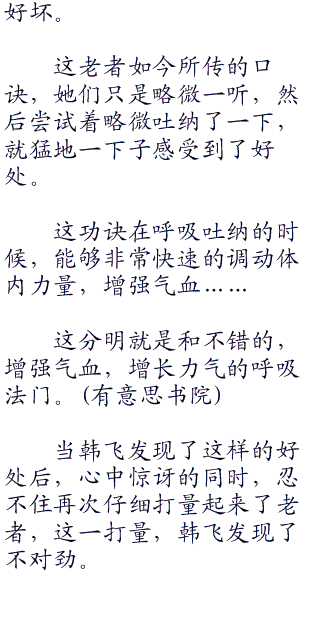 好坏。
这老者如今所传的口
诀，她们只是略微一听，然
后尝试着略微吐纳了一下，
就猛地一下子感受到了好
处。
这功诀在呼吸吐纳的时
候，能够非常快速的调动体
内力量，增强气血……
这分明就是和不错的，
增强气血，增长力气的呼吸
法门。(有意思书院)
当韩飞发现了这样的好
处后，心中惊讶的同时，忍
不住再次仔细打量起来了老
者，这一打量，韩飞发现了
不对劲。